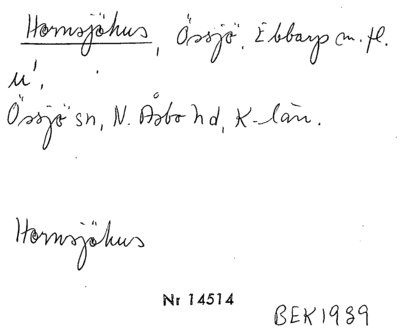 Hornsjöhus, Össjö, Ebbarp m. fl.
Össjö sn, N. Åsbo hd, K-län.
Hornsjöhus
Nr 14514
BEK1939